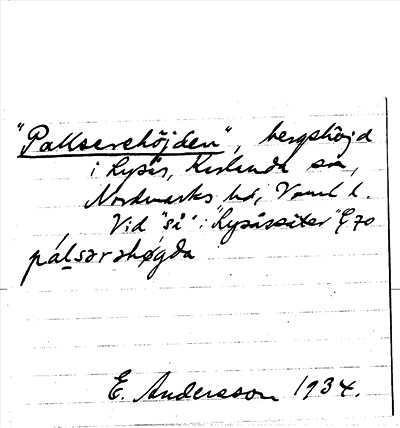 "Pallserehöjden", bergshöjd
i Lysås, Karlanda sn,
Nordmarks hd, Värml. l.
Vid "så" i "Lysåssäter" G 70
pálsərəhø̀gda
E. Andersson 1934.